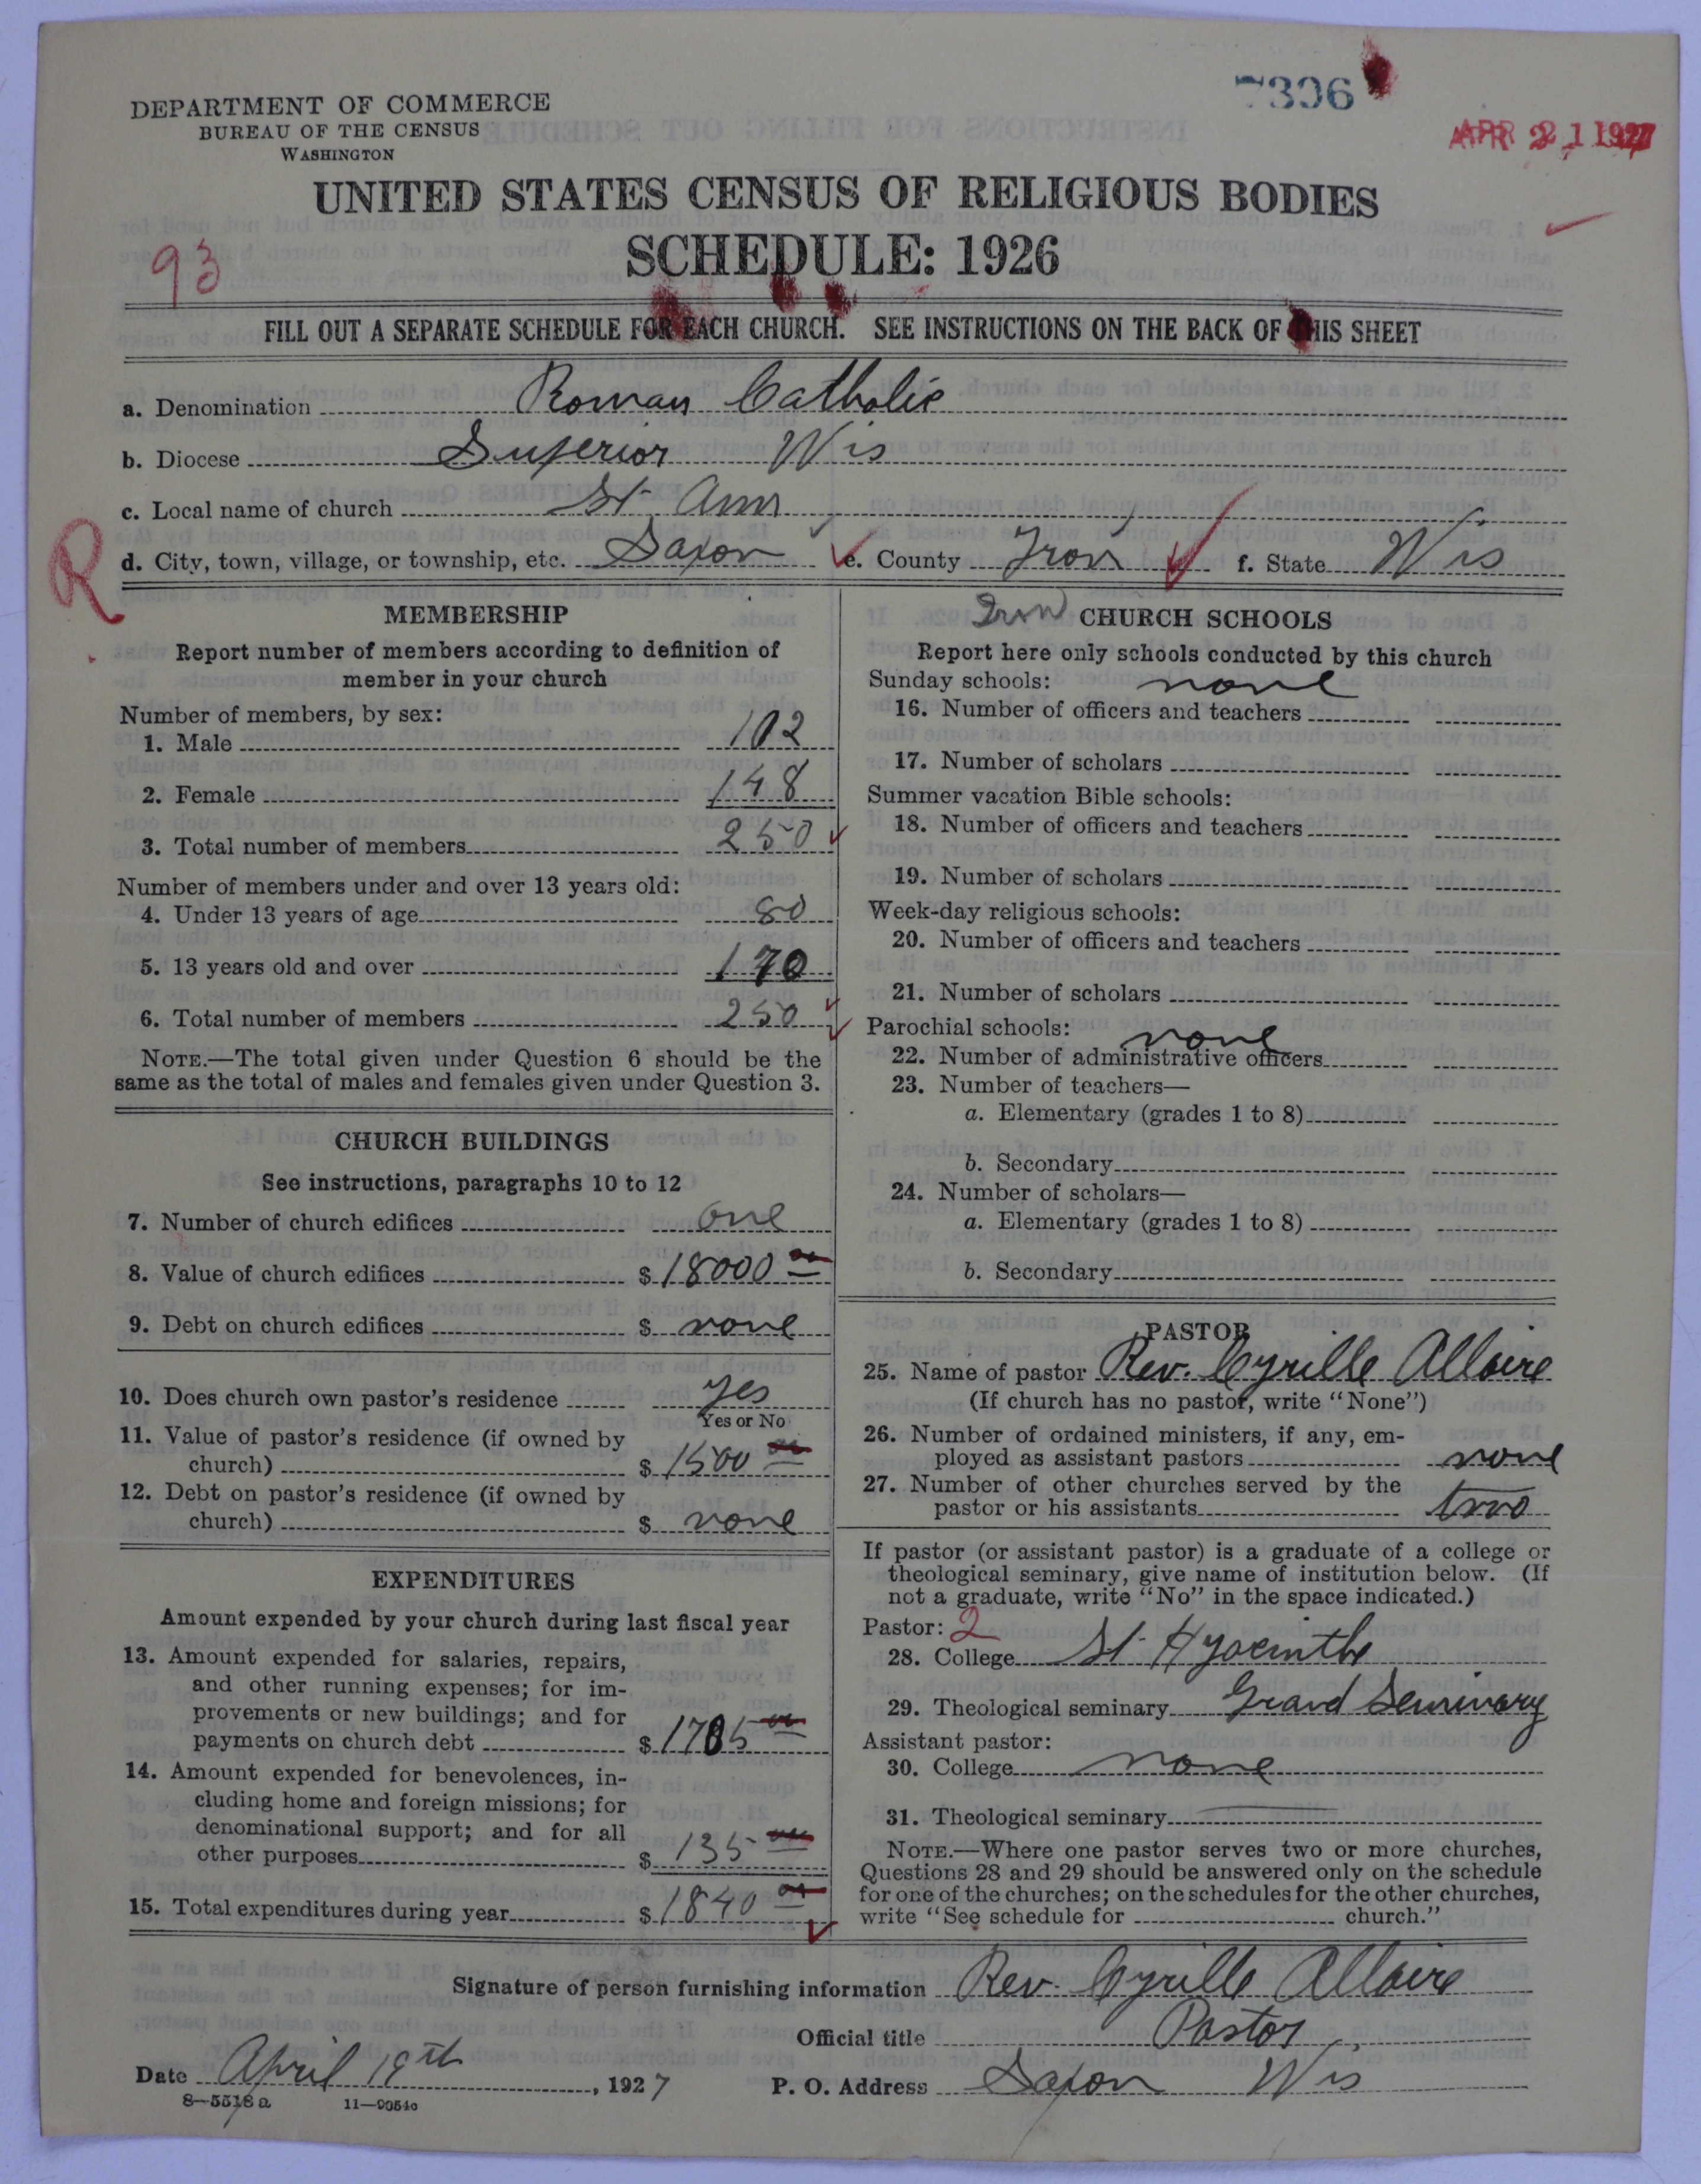 7306
APR 21 1927
DEPARTMENT OF COMMERCE
BUREAU OF THE CENSUS
WASHINGTON
UNITED STATES CENSUS OF RELIGIOUS BODIES
SCHEDULE: 1926
93
FILL OUT A SEPARATE SCHEDULE FOR EACH CHURCH. SEE INSTRUCTIONS ON THE BACK OF THIS SHEET
a. Denomination Roman Catholic
b. Diocese Superior Wis
c. Local name of church St. Ann
R
d. City, town, village, or township, etc. Saxon e. County Iron f. State Wis
MEMBERSHIP
Report number of members according to definition of
member in your church
Number of members, by sex:
1. Male 102
2. Female 148
3. Total number of members 250
Number of members under and over 13 years old:
4. Under 13 years of age 80
5. 13 years old and over 170
6. Total number of members 250
NOTE.—The total given under Question 6 should be the
same as the total of males and females given under Question 3.
CHURCH BUILDINGS
See instructions, paragraphs 10 to 12
7. Number of church edifices one
8. Value of church edifices $ 18000 00
9. Debt on church edifices $ none
10. Does church own pastor's residence yes
Yes or No
11. Value of pastor's residence (if owned by
church) $ 1500 00
12. Debt on pastor's residence (if owned by
church) $ none
EXPENDITURES
Amount expended by your church during last fiscal year
13. Amount expended for salaries, repairs,
and other running expenses; for im-
provements or new buildings; and for
payments on church debt $ 1705 00
14. Amount expended for benevolences, in-
cluding home and foreign missions; for
denominational support; and for all
other purposes $ 135 00
15. Total expenditures during year $ 1840 00
Iron
CHURCH SCHOOLS
Report here only schools conducted by this church
Sunday schools: none
16. Number of officers and teachers
17. Number of scholars
Summer vacation Bible schools:
18. Number of officers and teachers
19. Number of scholars
Week-day religious schools:
20. Number of officers and teachers
21. Number of scholars
Parochial schools: none
22. Number of administrative officers
23. Number of teachers—
a. Elementary (grades 1 to 8)
b. Secondary
24. Number of scholars—
a. Elementary (grades 1 to 8)
b. Secondary
PASTOR
25. Name of pastor Rev. Cyrille Allaire
(If church has no pastor, write "None")
26. Number of ordained ministers, if any, em-
ployed as assistant pastors none
27. Number of other churches served by the
pastor or his assistants two
If pastor (or assistant pastor) is a graduate of a college or
theological seminary, give name of institution below. (If
not a graduate, write "No" in the space indicated.)
Pastor: 2
28. College St. Hyacinthe
29. Theological seminary Grand Seminary
Assistant pastor:
30. College none
31. Theological seminary
NOTE.—Where one pastor serves two or more churches,
Questions 28 and 29 should be answered only on the schedule
for one of the churches; on the schedules for the other churches,
write "See schedule for church."
Signature of person furnishing information Rev. Cyrille Allaire
Official title Pastor
Date April 18th, 1927 P. O. Address Saxon Wis
8—5518a 11—9054c